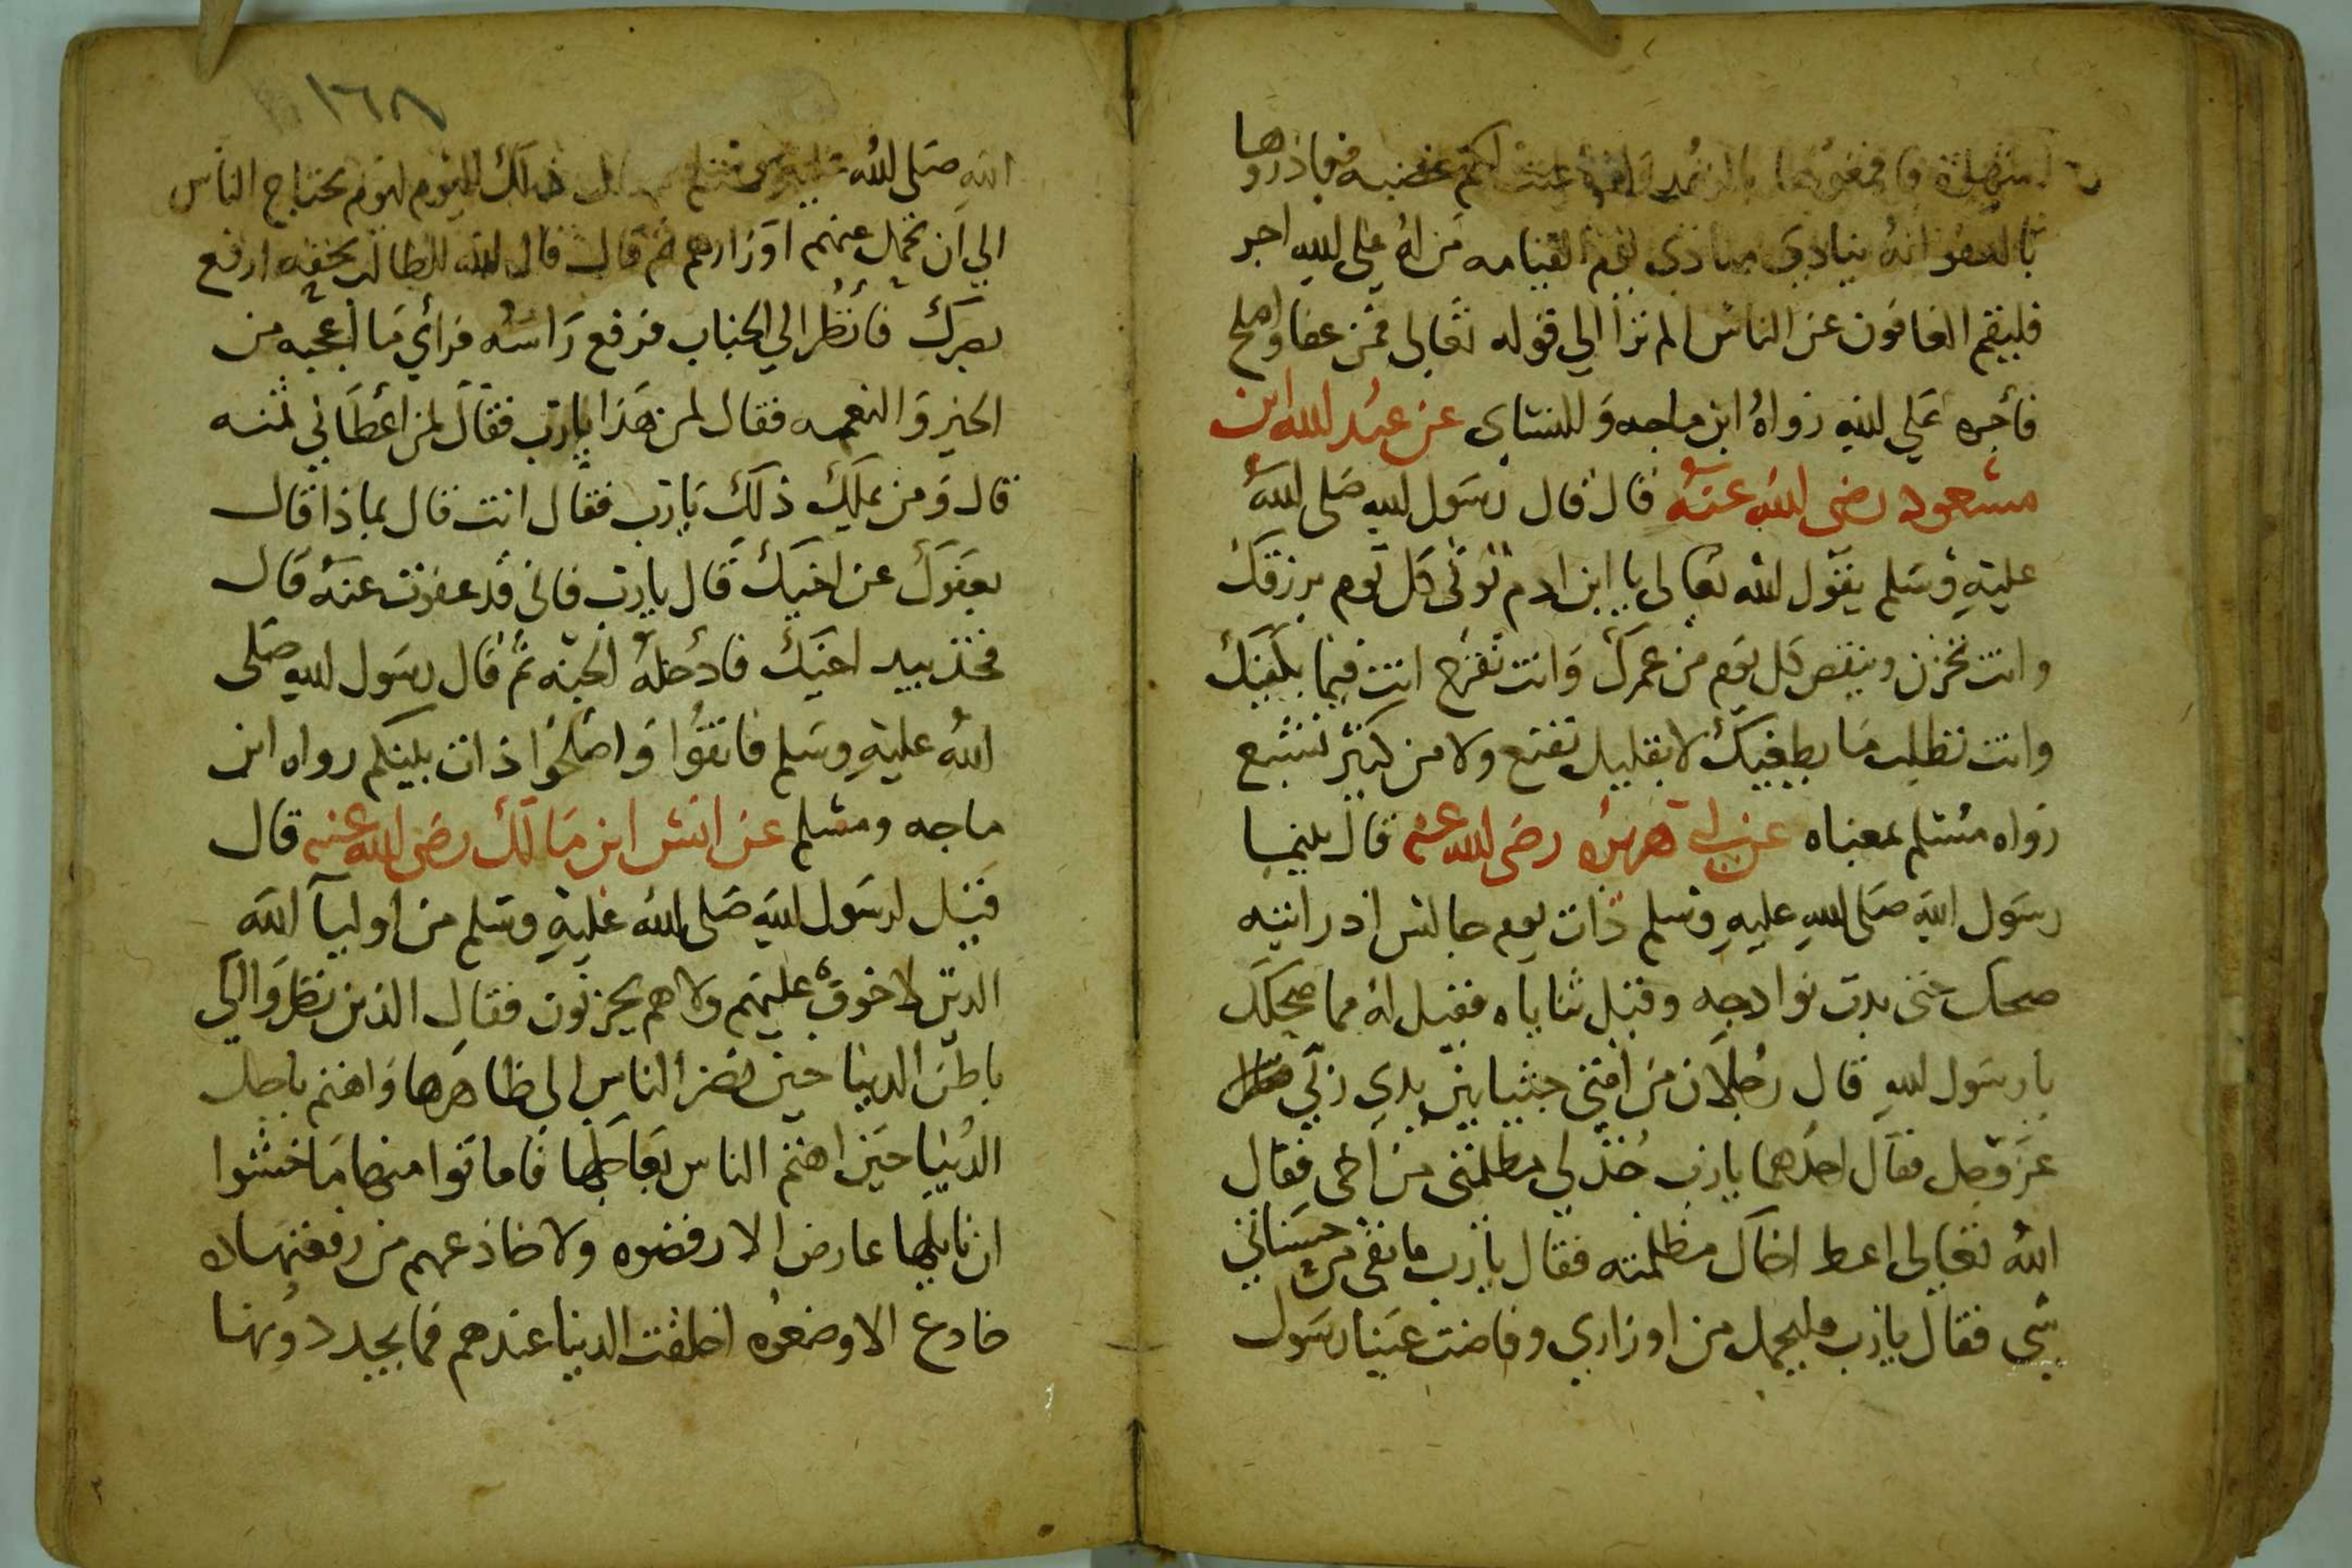 عضبه فماذروها
بالعفو انهُ ينادي منادي يوم القيامه من لهُ علي الله اجر
فليقم العافون عن الناس الم ترا الي قوله تعالى فمن عفا واصلح
فأجره علي الله رواهُ ابن ماجه وللنساى عن عبد الله ابن
مسعود رضى الله عنه قال قال رسول الله صلى الله
عليه وسلم يقول الله تعالى يا ابن ادم توتى كل يوم برزقك
وانت تحزن وينقص كل يوم من عمرك وانت تفرح انت فيما يكفيك
وانت تطلب ما يطغيك لا بقليل تقنع ولا من كثير تشبع
رواه مسلم بمعناه عن ابى هريره رضى الله عنه قال بينما
رسول الله صلى الله عليه وسلم ذات يوم جالس اذ راينه
ضحك حتى بدت نواجده وقبل ثناياه فقيل له مما ضحكك
يا رسول الله قال رجلان من امتي جثيا بين يدي ربي
عز وجل فقال احدهما يا رب خذ لي مظلمتي من اخى فقال
الله تعالى اعط اخاك مظلمته فقال يا رب ما بقى من حسناتي
شى فقال يا رب فليحمل من اوزاري وفاضت عينا رسول
١٦٨
الله صلى الله ذلك اليوم ليوم يحتاج الناس
الي ان تحمل عنهم اوزارهم ثم قال قال الله للطالب بحقه ارفع
بصرك فأنظر الي الجنان فرفع راسه فرأي ما أعجبه من
الخير والنعمه فقال لمن هذا يارب فقال لمن أعطاني ثمنه
قال ومن يملك ذلك يا رب فقال انت قال بماذا قال
بعفوك عن اخيك قال يا رب فاني قد عفوت عنه قال
فخذ بيد اخيك فادخله الجنه ثم قال رسول الله صلى
الله عليه وسلم فاتقوا واصلحوا ذات بينكم رواه ابن
ماجه ومسلم عن انس ابن مالك رضى الله عنه قال
قيل لرسول الله صلى الله عليه وسلم من اوليآ الله
الدين لا خوف عليهم ولا هم يحزنون فقال الذين نظروا الي
باطن الدنيا حين نضر الناس الي ظاهرها واهتم باجل
الدنيا حين اهتم الناس بعاجلها فاماتوا منها ما خشوا
ان نايلها عارض الا رفضوه ولا خادعهم من رفعتها
خادع الا وضعوه اخلقت الدنيا عندهم فما يجددونها